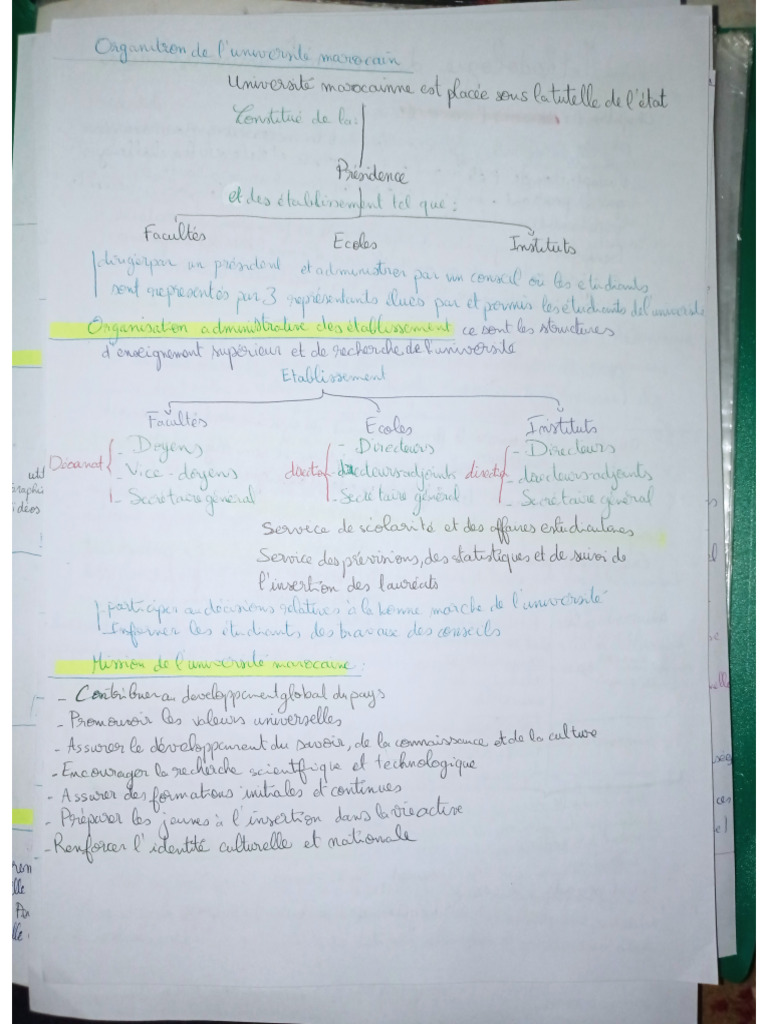 Organition de l'université marocain
Université marocainne est placée sous la tutelle de l'état
Constitué de la :
Présidence
et des établissement tel que :
Facultés Ecoles Instituts
dirigerpar un président et administrer par un conseil où les étudiants
sont représentés par 3 représentants élues par et permis les étudiants de l'université
Organisation administrative des établissement ce sont les structures
d'enseignement supérieur et de recherche de l'université
Etablissement
Facultés Ecoles Instituts
Décanat - Doyens - Directeurs - Directeurs
- Vice-doyens direction - directeurs-adjoints direction - directeurs-adjoints
- Secrétaire général - Secrétaire général - Secrétaire général
Service de scolarité et des affaires estudiantines
Service des prévisions, des statistiques et de suivi de
l'insertion des lauréats
participer au décisions relatives à la bonne marche de l'université
Informer les étudiants des travaux des conseils
Mission de l'université marocaine :
- Contribuer au developpement global du pays
- Promouvoir les valeurs universelles
- Assurer le développement du savoir, de la connaissance et de la culture
- Encourager la recherche scientifique et technologique
- Assurer des formations initiales et continues
- Préparer les jeunes à l'insertion dans la vie active
- Renforcer l'identité culturelle et nationale